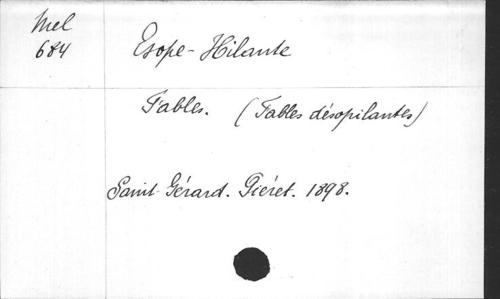 Mel
684
Esope-Hilante
Fables. (Fables désopilantes)
Saint-Gérard. Piéret. 1898.